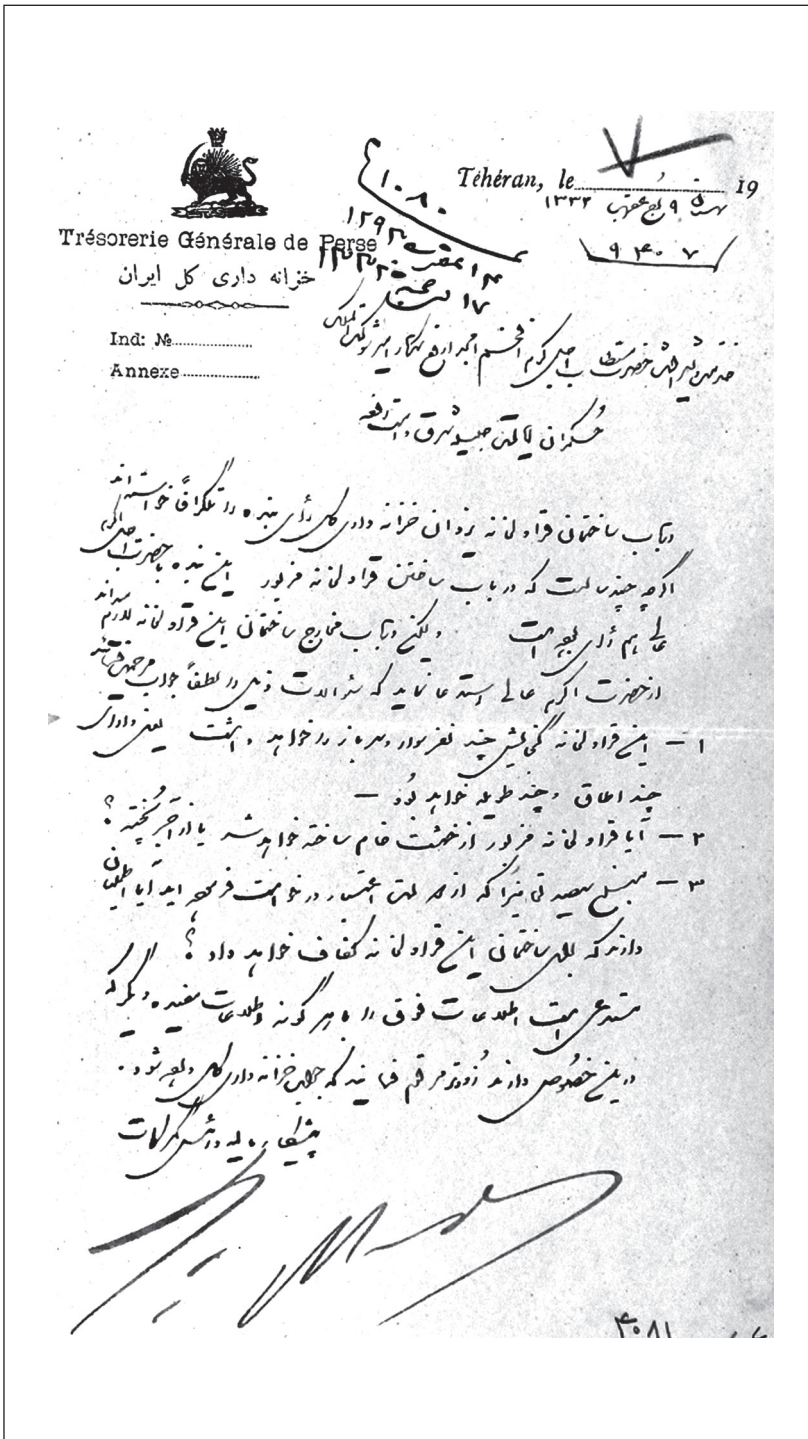 Téhéran, le 19
۱۳۳۲
۹۴۰۷
۱۰۸۰
Trésorerie Générale de Perse
خزانه داری کل ایران
Ind: №
Annexe
حکمران ایالتی جلیله
در باب ساختمان قراولخانه یزدان خزانه داری کل رأی بنده را تلگرافاً خواسته‌اند
اگرچه چند سال است که در باب ساختن قراولخانه مزبور این بنده با حضرت اجل اکرم
عالی هم رأی بوده است ولیکن در باب مخارج ساختمان این قراولخانه لازم میداند
از حضرت اکرم عالی استدعا نماید که سئوالات ذیل را لطفاً جواب مرحمت فرمایند
۱ – این قراولخانه گنجایش چند نفر سوار و سرباز را خواهد داشت یعنی دارای
چند اطاق و چند طویله خواهد بود –
۲ – آیا قراولخانه مزبور از خشت خام ساخته خواهد شد یا از آجر پخته ؟
۳ – مبلغ سیصد تومانی را که از اعتبار درخواست فرموده‌اید آیا اطمینان
دارند که برای ساختمان این قراولخانه کفاف خواهد داد ؟
مستدعی است اطلاعات فوق را با هرگونه اطلاعات مفیده دیگر که
در این خصوص دارند زودتر مرقوم فرمایند که جواب خزانه داری کل داده شود .
پیشکار مالیه و رئیس گمرکات
۴۰۸۱